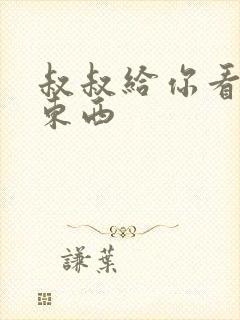 叔叔給你看
東西
謙葉